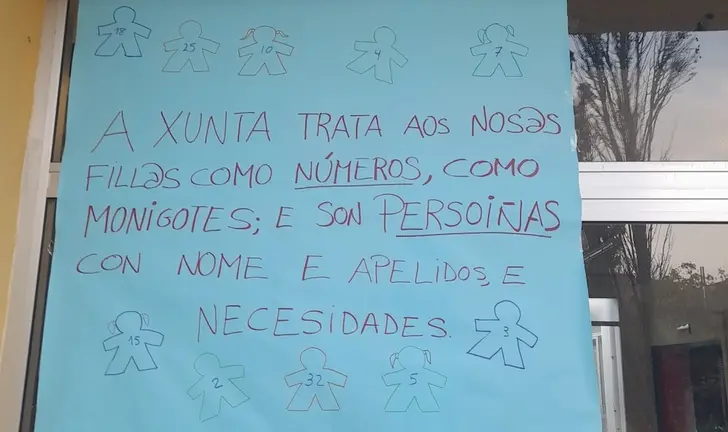 18 25 10 4 7
A XUNTA TRATA AOS NOSƏS
FILLƏS COMO NÚMEROS, COMO
MONIGOTES; E SON PERSOIÑAS
CON NOME E APELIDOS, E
NECESIDADES.
15 2 32 5 3